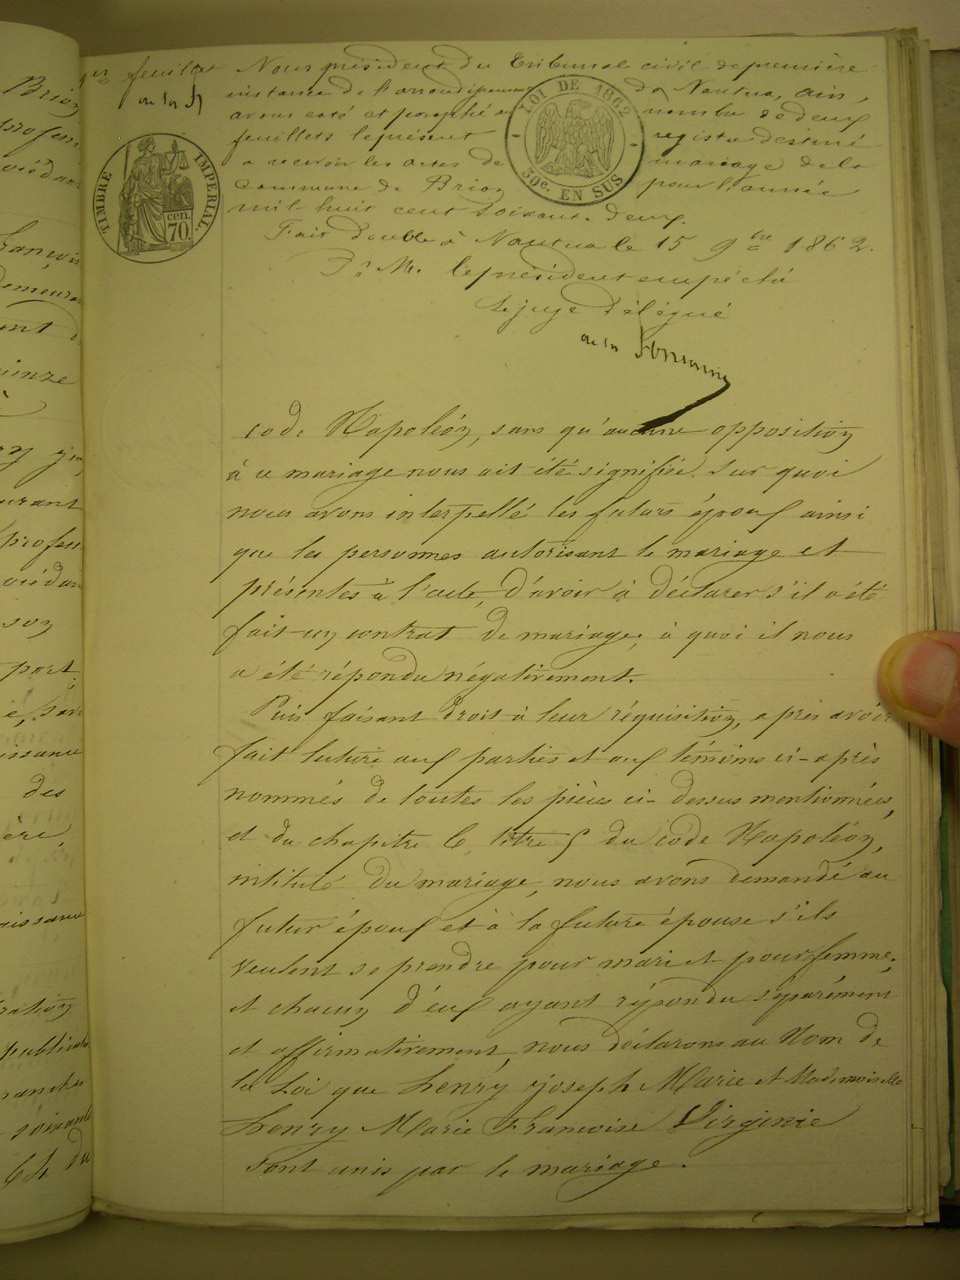 1er feuillet
Nous président du Tribunal civil de première
instance de l'arrondissement de Nantua, ain,
avons coté et paraphé au nombre de deux
feuillets le présent registre destiné
a recevoir les actes de mariage de la
commune de Brion pour l'année
mil huit cent soixante deux.
Fait double à Nantua le 15 9bre 1862.
Pr M. le président empêché
Le juge délégué
LOI DE 1862
50c. EN SUS
TIMBRE IMPERIAL
70 cen.
code Napoléon, sans qu'aucune opposition
à ce mariage nous ait été signifiée. Sur quoi
nous avons interpellé les futurs époux ainsi
que les personnes autorisant le mariage et
présentes à l'acte, d'avoir à déclarer s'il a été
fait un contrat de mariage; à quoi il nous
a été répondu négativement.
Puis faisant droit à leur réquisition, après avoir
fait lecture aux parties et aux témoins ci-après
nommés de toutes les pièces ci-dessus mentionnées,
et du chapitre 6 titre 5 du code Napoléon,
intitulé Du mariage, nous avons demandé au
futur époux et à la future épouse s'ils
veulent se prendre pour mari et pour femme,
et chacun d'eux ayant répondu séparément
et affirmativement, nous déclarons au Nom de
la Loi que henry joseph Marie et Mademoiselle
henry Marie Francoise Virginie
sont unis par le mariage.